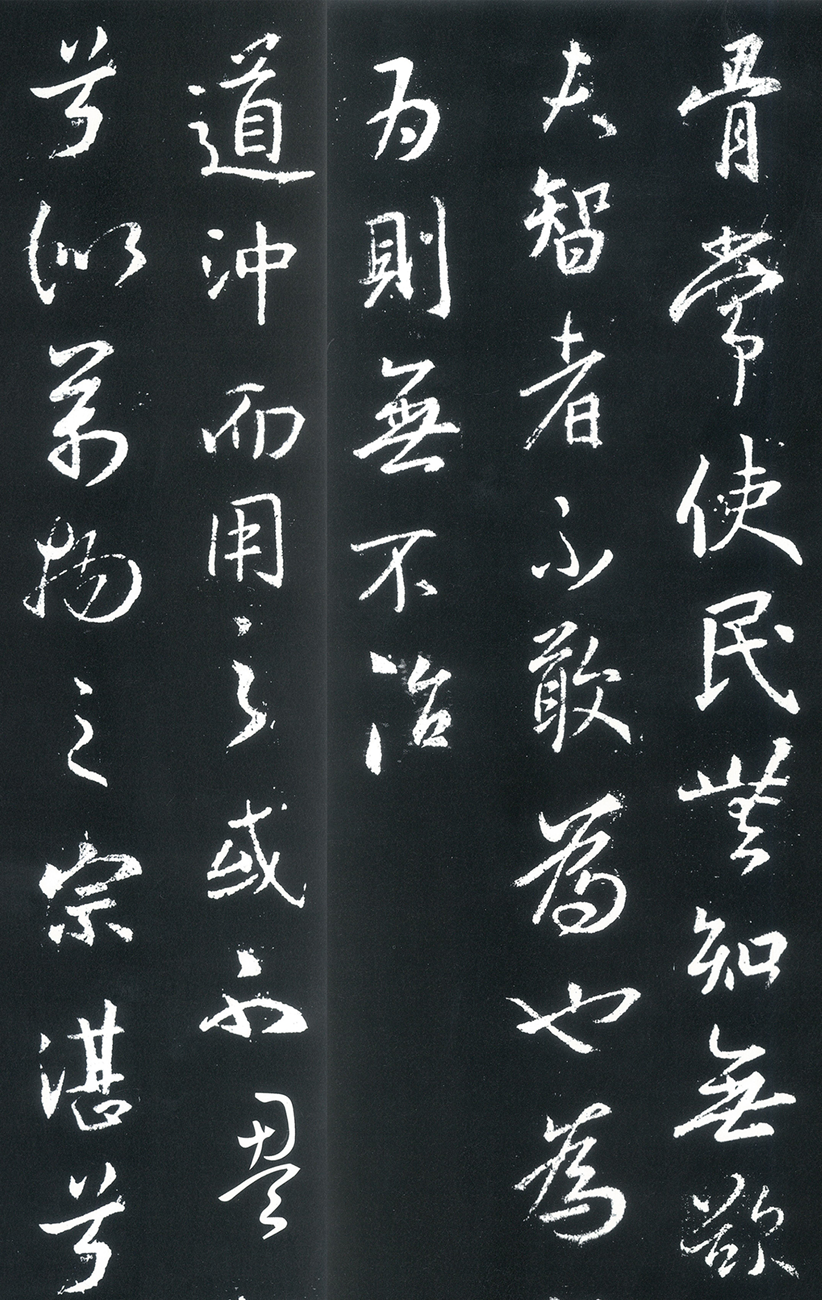 骨常使民無知無欲
夫智者不敢為也為
为則無不治
道沖而用之或不盈
兮似萬物之宗湛兮